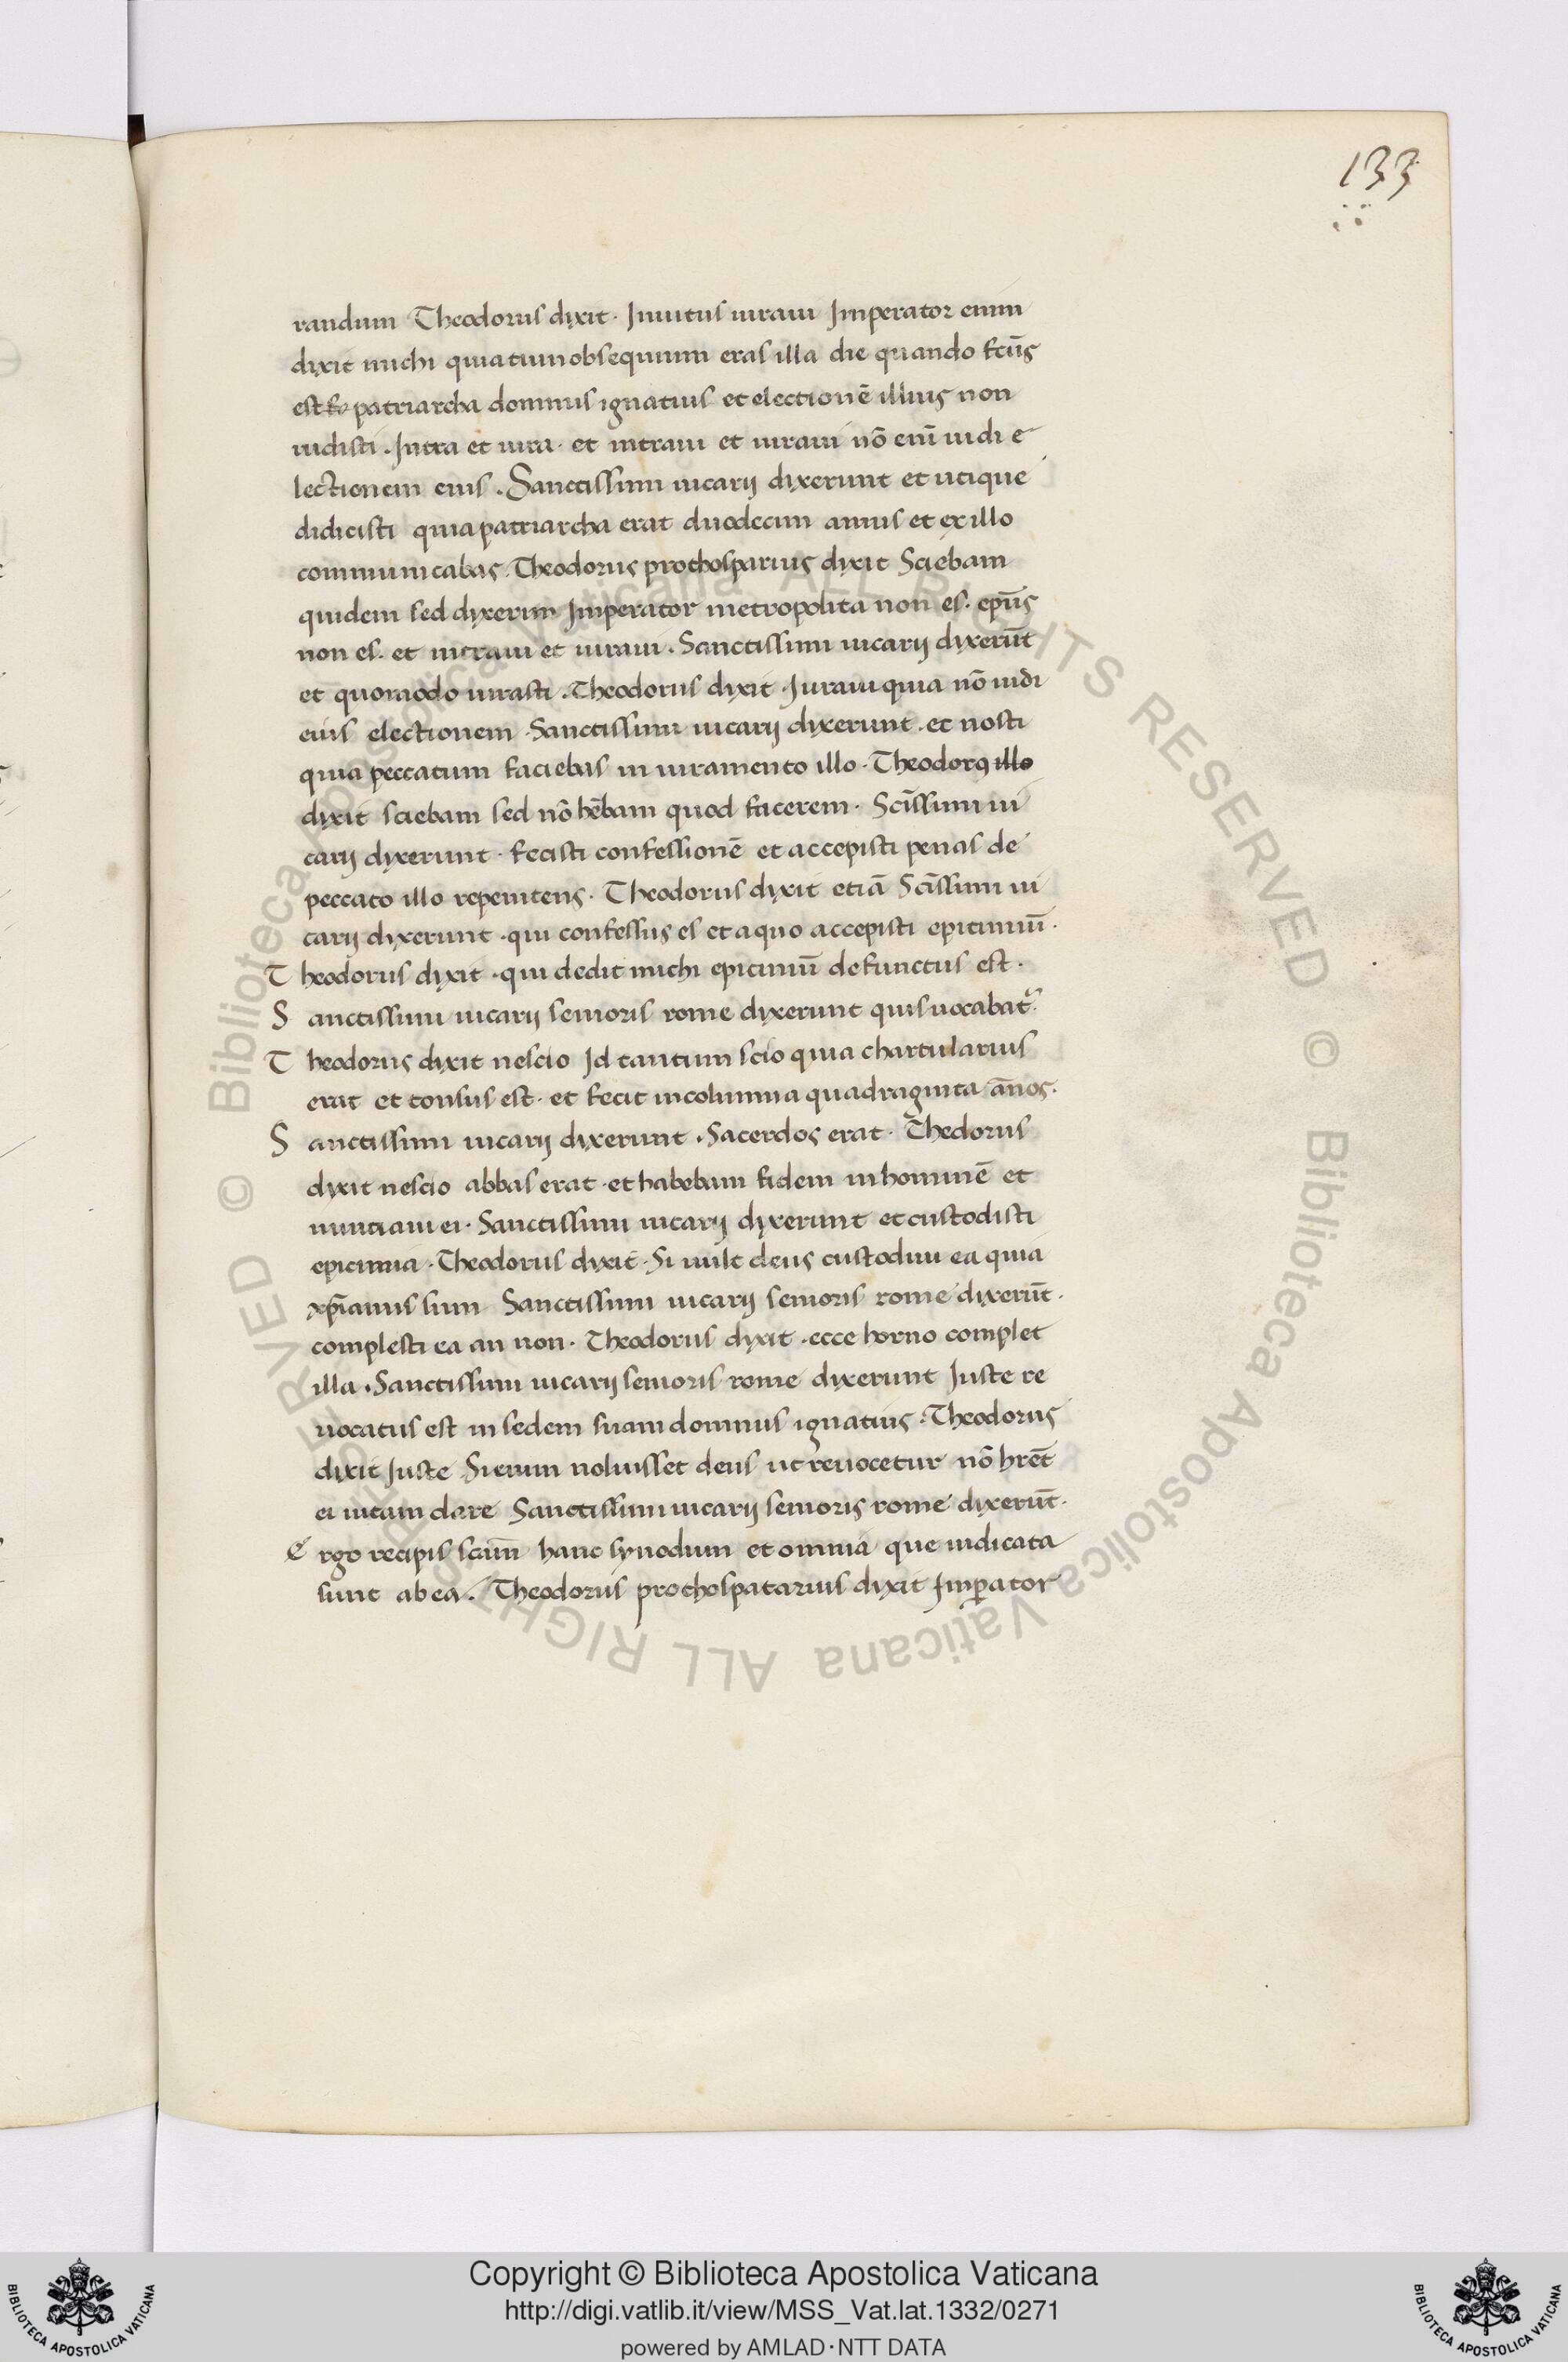 133
randum Theodorus dixit · Inuitus iuraui Imperator enim
dixit michi quia tum obsequium eras illa die quando fcus̄
est patriarcha domnus ignatius et electionē illius non
uidisti . Intra et iura · et intraui et iuraui nō eni̅ uidi e
lectionem eius . Sanctissimi uicarij dixerunt et utique
didicisti quia patriarcha erat duodecim annis et ex illo
communicabas . Theodorus prothosparius dixit Sciebam
quidem sed dyxerim Imperator metropolita non es · ep̄us
non es · et intraui et iuraui . Sanctissimi uicarij dixerūt
et quomodo iurasti . Theodorus dixit . Iuraui quia nō uidi
eius electionem . Sanctissimi uicarij dixerunt . et nosti
quia peccatum faciebas in iuramento illo · Theodorus illo
dyxit sciebam sed nō hēbam quod facerem · Scīssimi ui
carij dixerunt · fecisti confessionē et accepisti penas de
peccato illo repenitens · Theodorus dyxit etiā Scīssimi ui
carij dixerunt · qui confessus es et a quo accepisti epitimiū ·
Theodorus dixit · qui dedit michi epitimiū defunctus est ·
Sanctissimi uicarij senioris rome dyxerunt quis uocabat̄
Theodorus dixit nescio Id tantum scio quia chartularius
erat et tonsus est · et fecit in columna quadraginta ān̄os ·
Sanctissimi uicarij dixerunt . Sacerdos erat · Thedorus
dyxit nescio abbas erat · et habebam fidem in hominē et
nuntiaui ei · Sanctissimi uicarij dyxerunt et custodisti
epitimia · Theodorus dyxit · Si uult deus custodiui ea quia
xp̄ianus sum Sanctissimi uicarij senioris rome dixerūt ·
complesti ea an non · Theodorus dyxit · ecce horno complet
illa . Sanctissimi uicarij senioris rome dixerunt Iuste re
uocatus est in sedem suam domnus ignatius · Theodorus
dixit Iuste Si enim noluisset deus ut reuocetur nō hrēt
ei uitam dare Sanctissimi uicarij senioris rome dyxerūt ·
Ergo recipis scām hanc synodum et omnia que iudicata
sunt ab ea . Theodorus prothospatarius dixit Imp̄ator
© Biblioteca Apostolica Vaticana ALL RIGHTS RESERVED © Biblioteca Apostolica Vaticana ALL RIGHTS RESERVED
Copyright © Biblioteca Apostolica Vaticana
http://digi.vatlib.it/view/MSS_Vat.lat.1332/0271
powered by AMLAD·NTT DATA
BIBLIOTECA APOSTOLICA VATICANA
BIBLIOTECA APOSTOLICA VATICANA